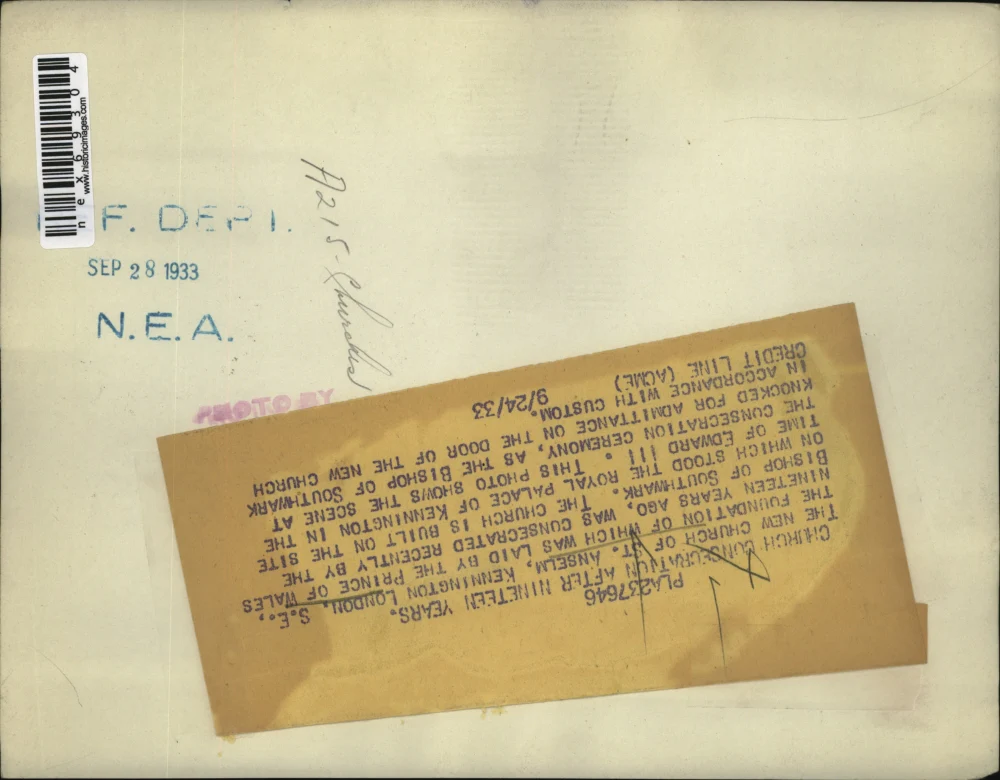 nex69304
www.historicimages.com
F. DEPT.
SEP 28 1933
N.E.A.
A215-Churches
PHOTO BY
PLA237646
CHURCH CONSECRATION AFTER NINETEEN YEARS.
THE NEW CHURCH OF ST. ANSELM, KENNINGTON LONDON, S.E.,
THE FOUNDATION OF WHICH WAS LAID BY THE PRINCE OF WALES
NINETEEN YEARS AGO, WAS CONSECRATED RECENTLY BY THE
BISHOP OF SOUTHWARK. THE CHURCH IS BUILT ON THE SITE
ON WHICH STOOD THE ROYAL PALACE OF KENNINGTON IN THE
TIME OF EDWARD III . THIS PHOTO SHOWS THE SCENE AT
THE CONSECRATION CEREMONY, AS THE BISHOP OF SOUTHWARK
KNOCKED FOR ADMITTANCE ON THE DOOR OF THE NEW CHURCH
IN ACCORDANCE WITH CUSTOM.
CREDIT LINE (ACME) 9/24/33